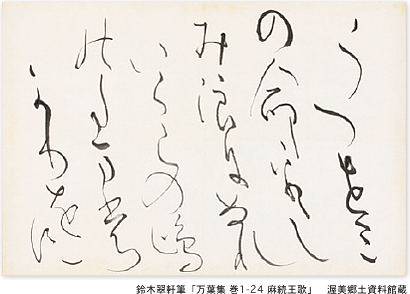 うつせみ
の命をゝし
み浪にぬれ
いらこの嶋
のたまも
かりをす
鈴木翠軒筆「万葉集 巻1-24 麻続王歌」　渥美郷土資料館蔵